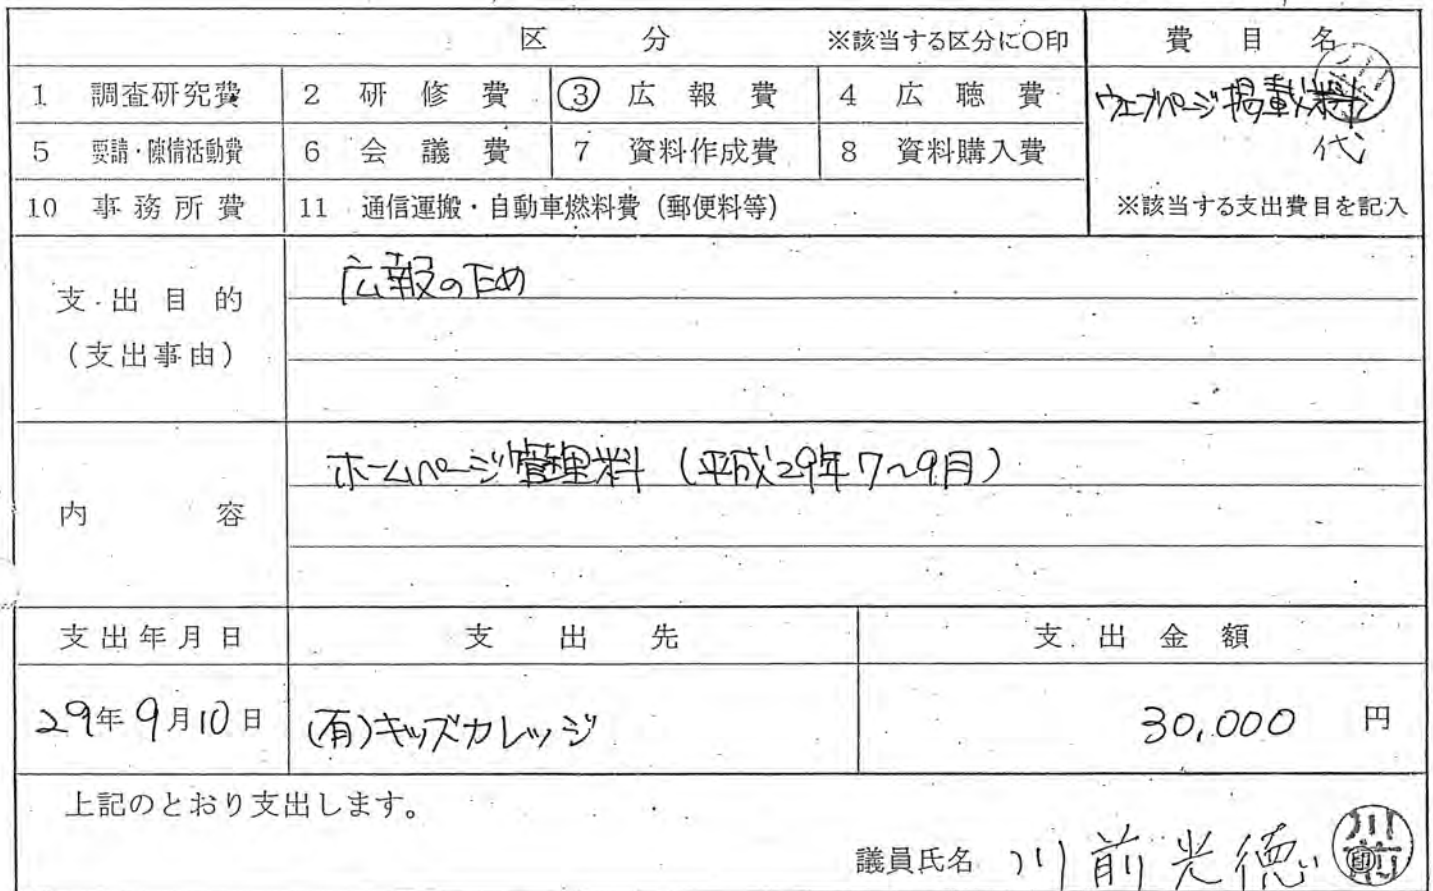 区 分 ※該当する区分に○印 費目名
1 調査研究費 2 研修費 ③ 広報費 4 広聴費
ウェブページ掲載
代
5 要請・陳情活動費 6 会議費 7 資料作成費 8 資料購入費
10 事務所費 11 通信運搬・自動車燃料費(郵便料等) ※該当する支出費目を記入
支出目的
(支出事由)
広報のため
内容
ホームページ管理料(平成29年7~9月)
支出年月日 支出先 支出金額
29年9月10日 (有)キッズカレッジ 30,000円
上記のとおり支出します。
議員氏名 川前光徳 川前 印